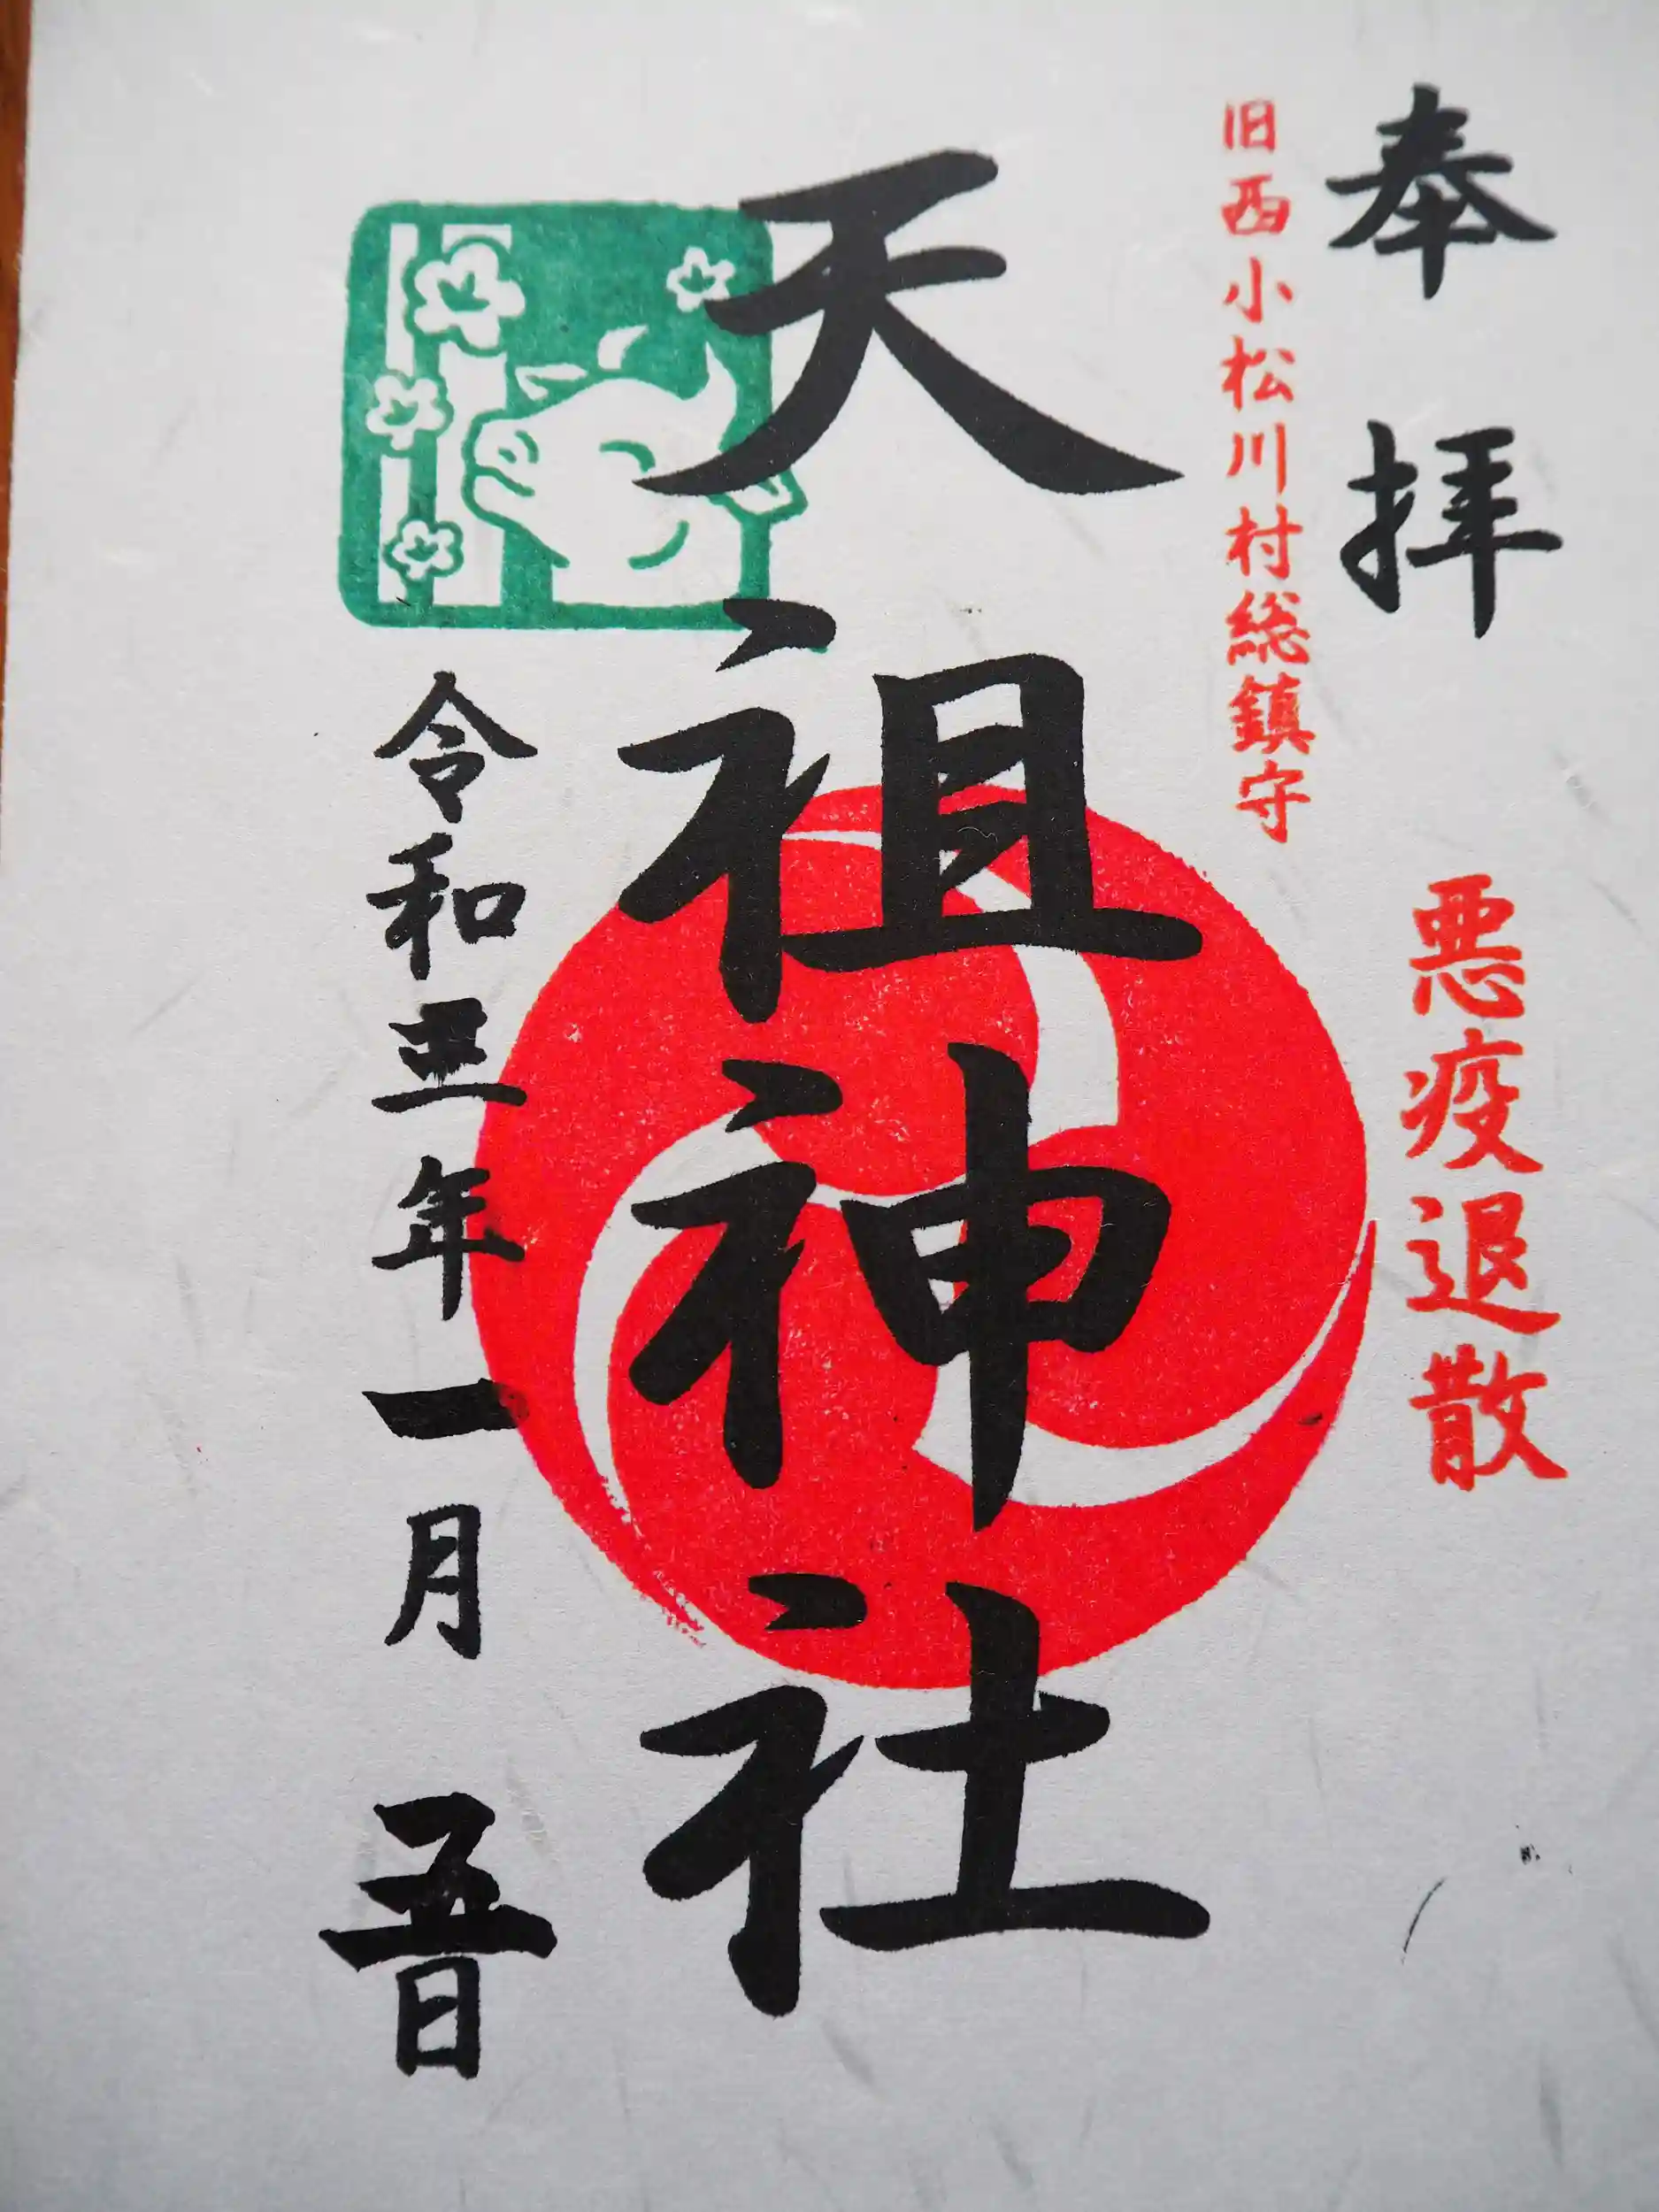 奉拝
悪疫退散
旧西小松川村総鎮守
天祖神社
令和三年一月五日